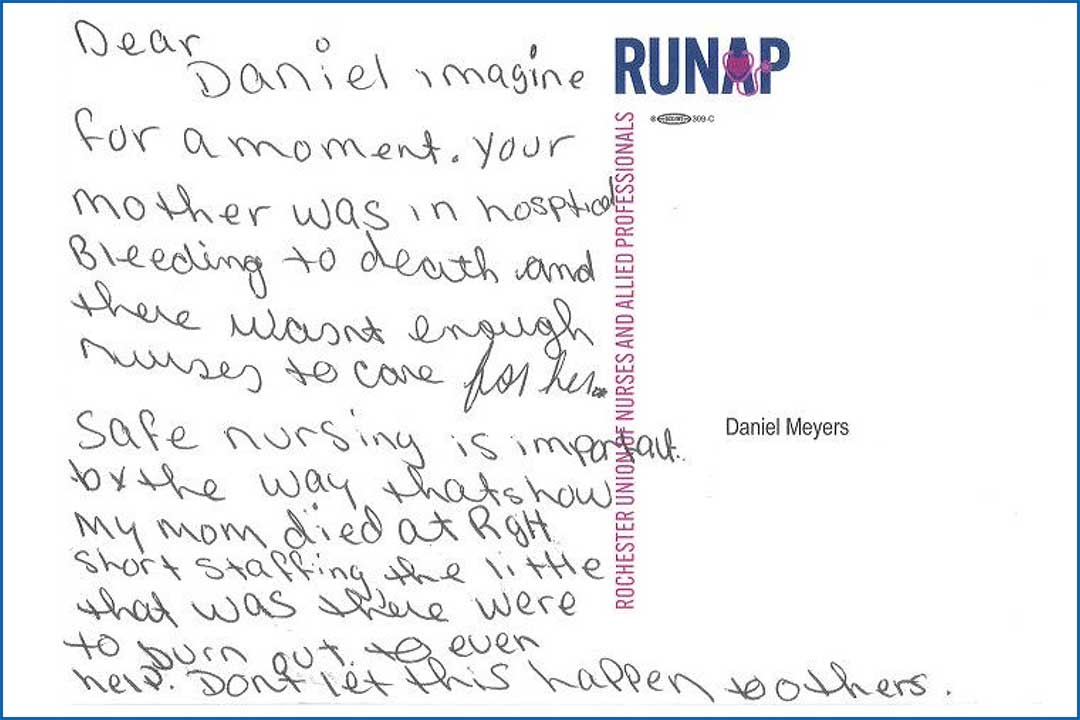 Dear
Daniel imagine
for a moment. Your
mother was in hosptical
Bleeding to death and
there wasnt enough
nurses to care for her.
Safe nursing is important.
by the way thats how
My mom died at RgH
short staffing the little
that was there were
to burn out. to even
help. Dont let this happen to others.
RUNAP
309-C
ROCHESTER UNION OF NURSES AND ALLIED PROFESSIONALS
Daniel Meyers